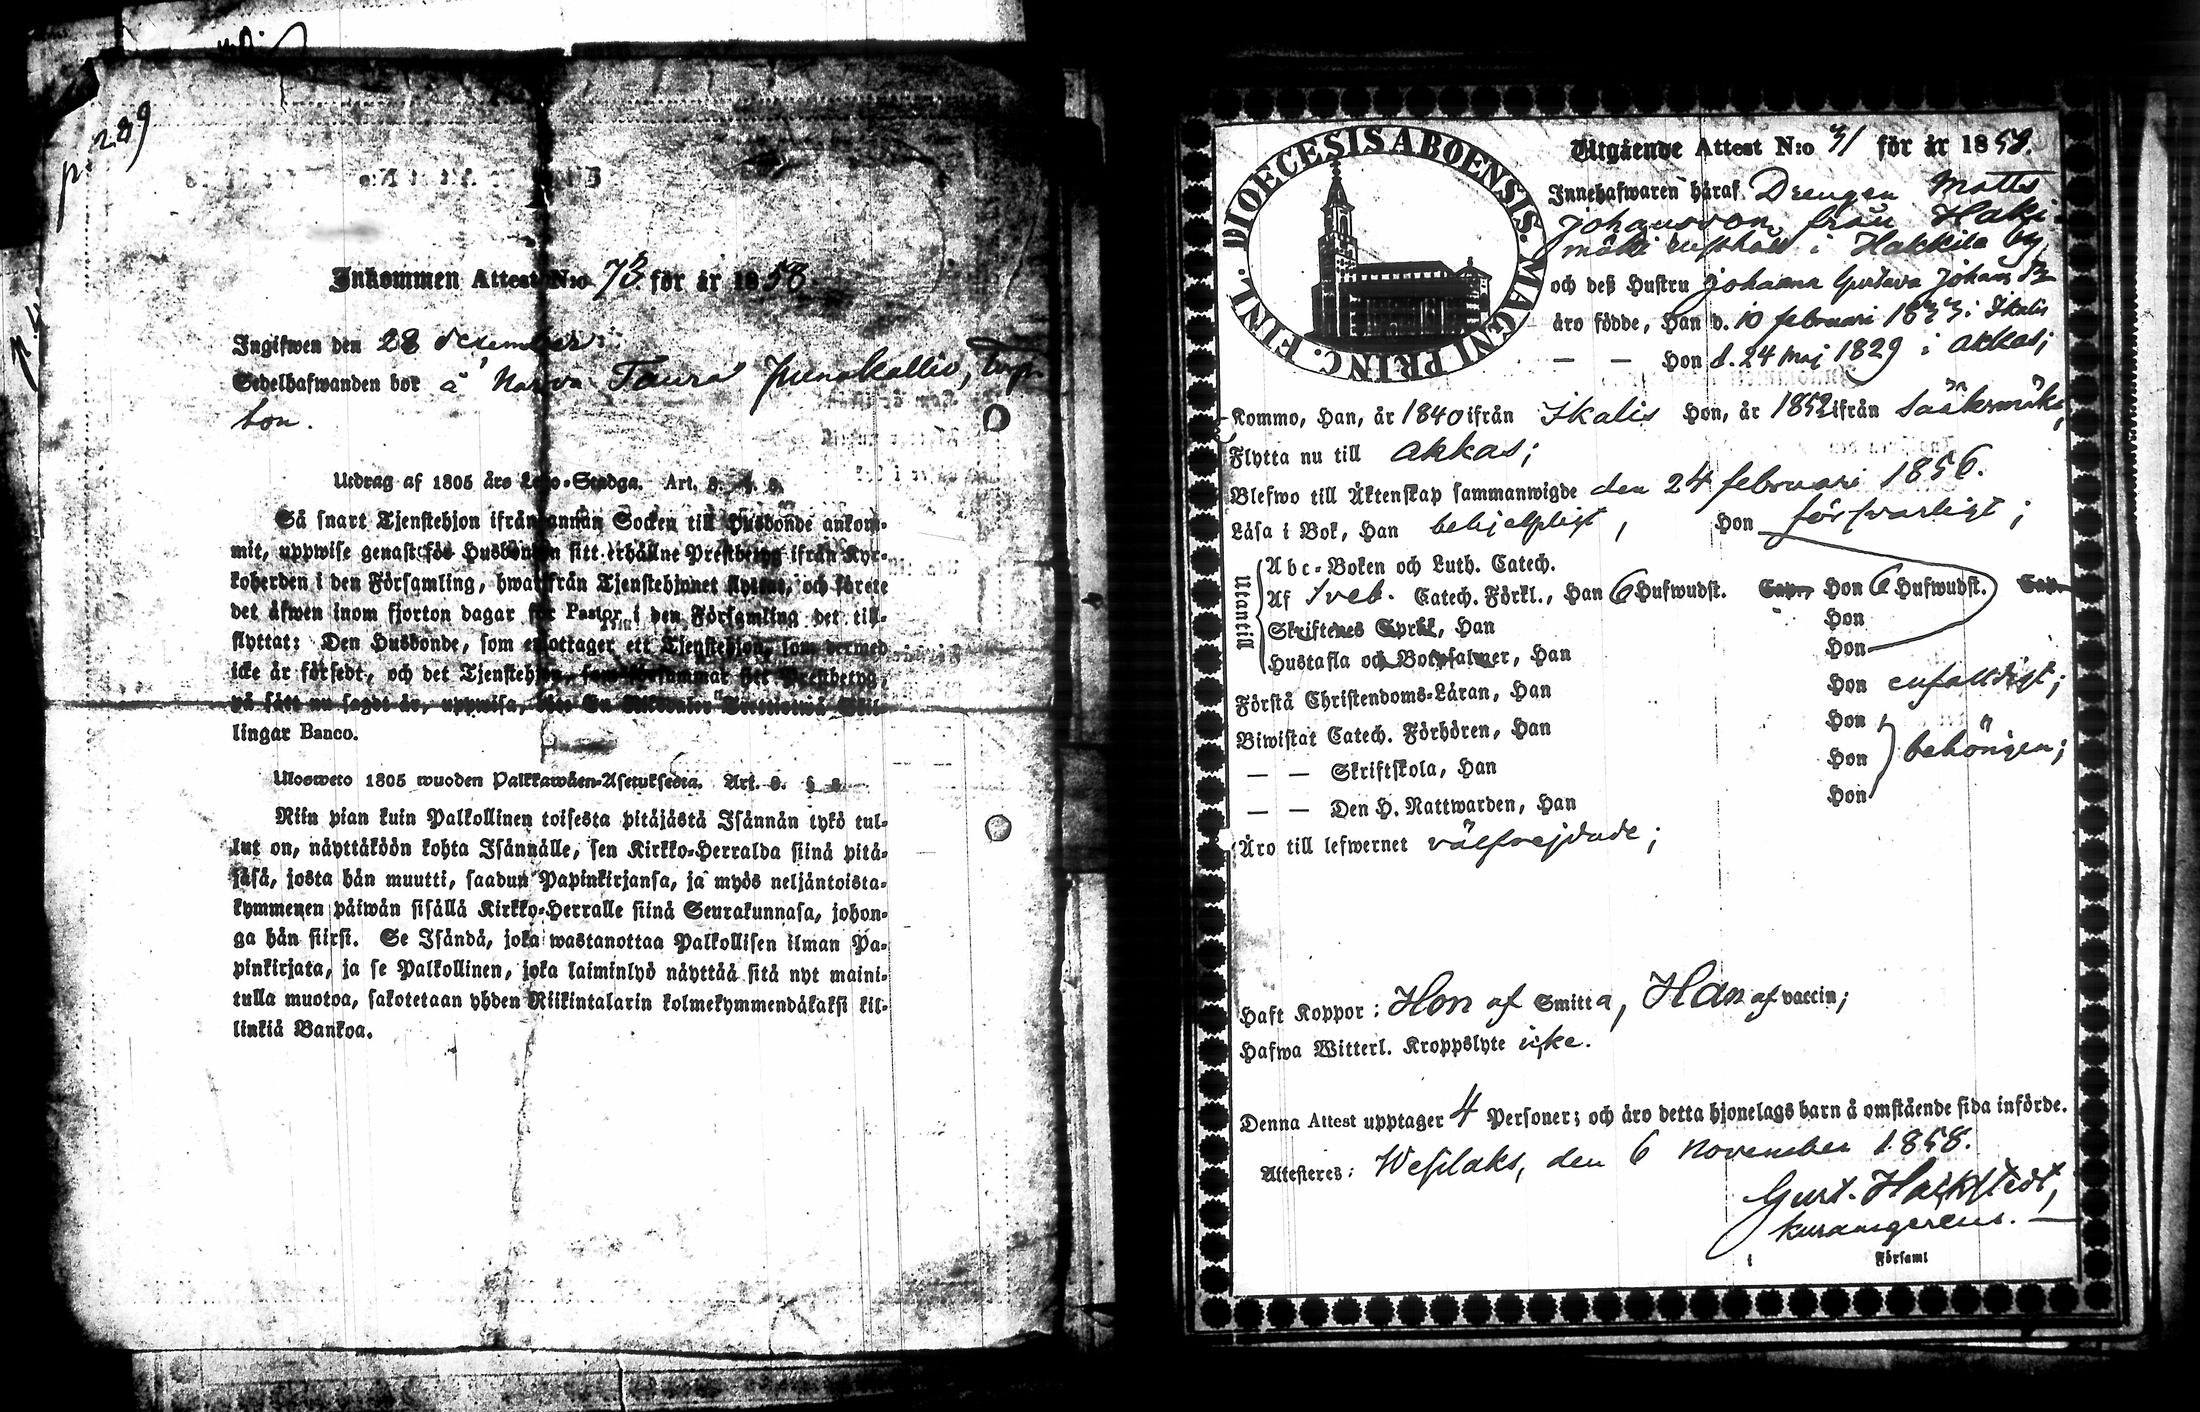 p. 289
Inkommen Attest N:o 73 för år 1858
Ingifwen den 28 december
Sedelhafwanden bor å Narva Taura Punakallio, torp-
ton.
Utdrag af 1805 års Lego-Stadga. Art. 8. § 8.
Så snart Tjenstehjon ifrån annan Socken till Husbonde ankom-
mit, uppwise genast för Husbonden sitt erhållne Prestbetyg ifrån Kyr-
koherden i den Församling, hwarifrån Tjenstehjonet flyttat, och förete
det äfwen inom fjorton dagar för Pastor i den Församling det till-
flyttat: Den Husbonde, som emottager ett Tjenstehjon, som dermed
icke är försedt, och det Tjenstehjon, som försummar sitt Prestbetyg,
på sätt nu sagdt är, uppwisa, böte En Riksdaler Trettiotwå Skil-
lingar Banco.
Ulosweto 1805 wuoden Palkkawäen-Asetuksesta. Art. 8. § 8.
Niin pian kuin Palkollinen toisesta pitäjästä Isännän tykö tul-
lut on, näyttäköön kohta Isännälle, sen Kirkko-Herralda siinä pitä-
jäsä, josta hän muutti, saadun Papinkirjansa, ja myös neljäntoista-
kymmenen päiwän sisällä Kirkko-Herralle siinä Seurakunnasa, johon-
ga hän siirsi. Se Isändä, joka wastanottaa Palkollisen ilman Pa-
pinkirjata, ja se Palkollinen, joka laiminlyö näyttää sitä nyt maini-
tulla muotoa, sakotetaan yhden Riikintalarin kolmekymmendäkaksi kil-
linkiä Bankoa.
DIOECESIS ABOENSIS. MAGNI PRINC. FINL.
Utgående Attest N:o 31 för år 1858.
Innehafwaren häraf Drengen Matts
Johansson från Haki-
mäki rusthåll i Hakkila by
och deß Hustru Johanna Gustava Johans Dr
äro födde, Han d. 10 februari 1833 i Ikalis
— — Hon d. 24 Maj 1829 i Akkas;
Kommo, Han, år 1840 ifrån Ikalis Hon, år 1852 ifrån Sääksmäki,
Flytta nu till Akkas;
Blefwo till Äktenskap sammanwigde den 24 februari 1856.
Läsa i Bok, Han behjelpligt, Hon försvarligt;
Utantill
Abc-Boken och Luth. Catech.
Af Sveb. Catech. Förkl., Han 6 Hufwudst. Cap., Hon 6 Hufwudst. Cap.
Skriftenes Språk, Han Hon
Hustafla och Botpsalmer, Han Hon
Förstå Christendoms-Läran, Han Hon enfalldigt;
Biwistat Catech. Förhören, Han Hon
— — Skriftskola, Han Hon behörigen;
— — Den H. Nattwarden, Han Hon
Äro till lefwernet välfrejdade;
Haft Koppor: Hon af Smitta, Han af vaccin;
Hafwa Witterl. Kroppslyte icke.
Denna Attest upptager 4 Personer; och äro detta hjonelags barn å omstående sida införde.
Attesteres: Wesilaks, den 6 November 1858.
Gust. Halkstedt,
kuramgerens. —
i Församl